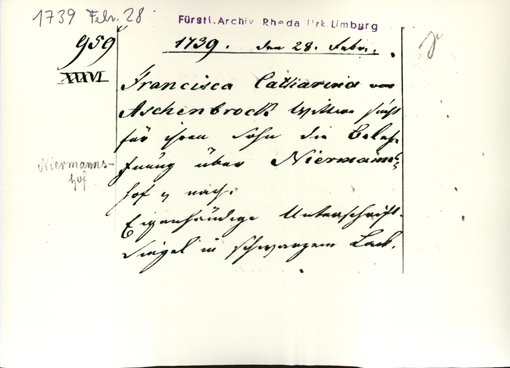 1739 Febr. 28
Fürstl. Archiv Rheda Urk. Limburg
959
1739. den 28. Febr.
XXXVI
Francisca Catharina von
Aschenbrock Wittwe sucht
für ihren Sohn die Beleh-
nung über Niermanns-
Niermanns-
hof
hof nach.
Eigenhändige Unterschrift.
Siegel in schwarzem Lack.